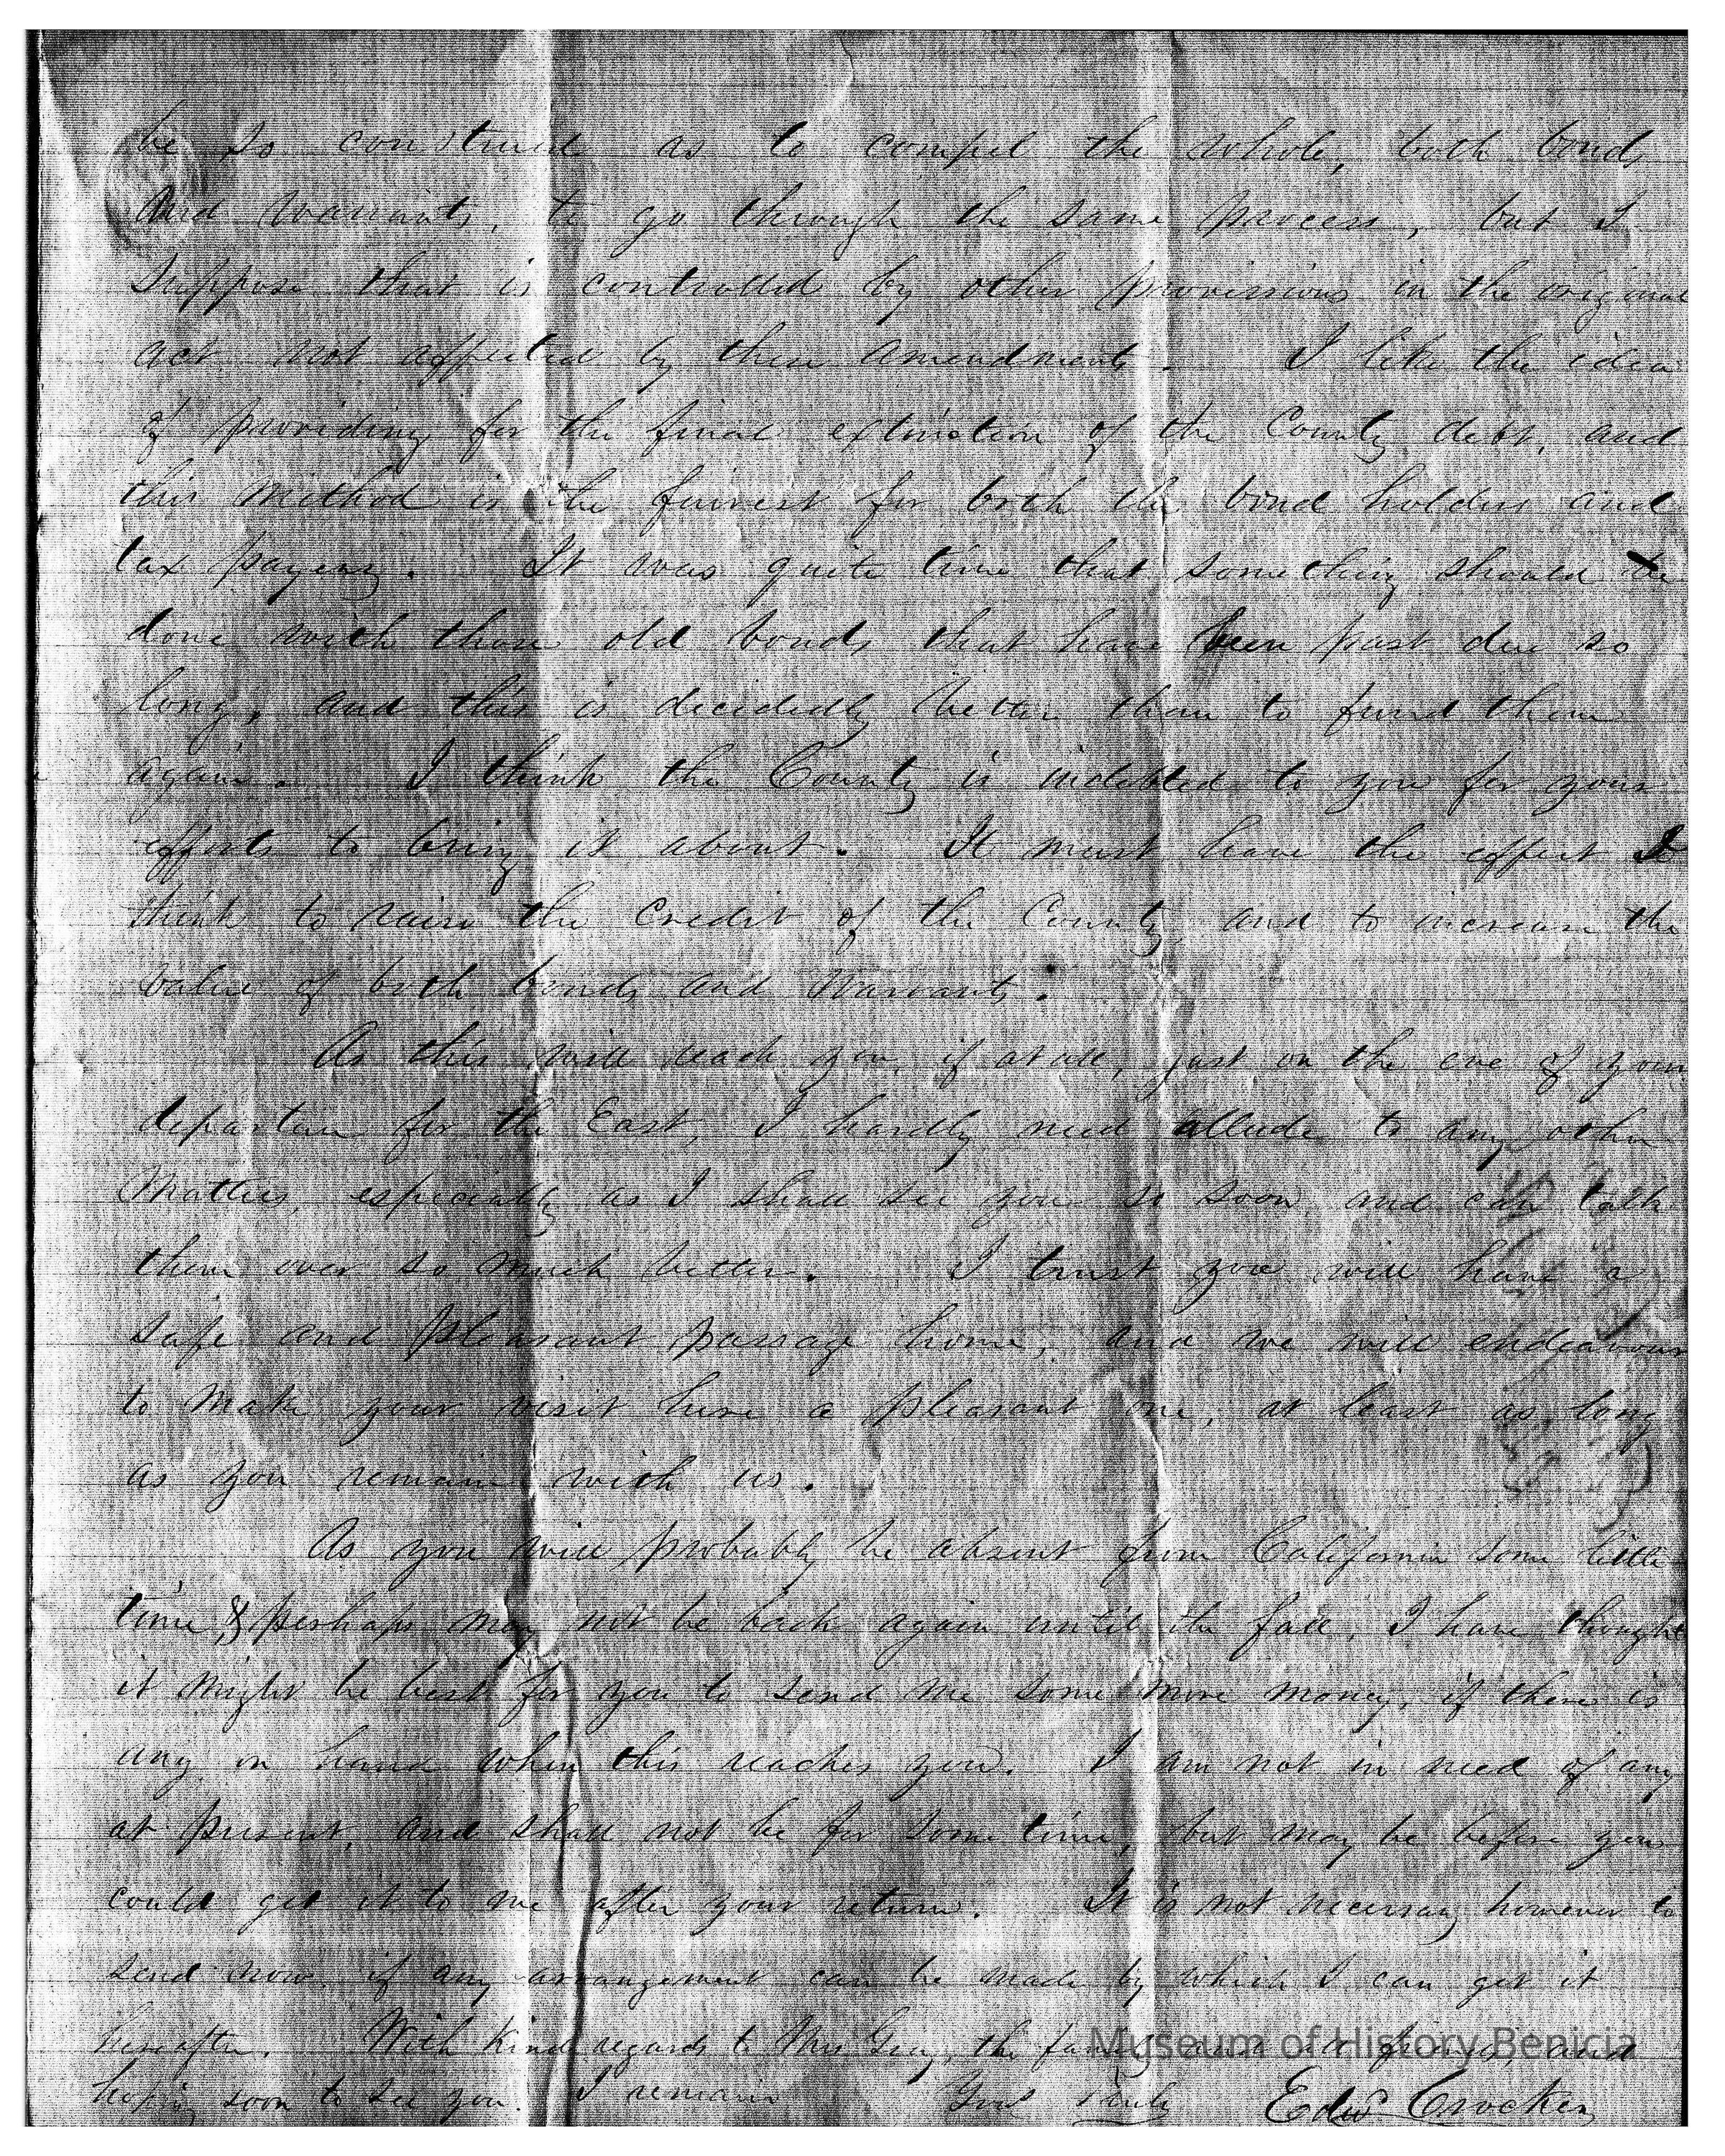 be so construed as to compel the whole, both bonds
and warrants, to go through the same process, but I
suppose that is controlled by other provissions in the original
act not affected by these amendments. I like the idea
of providing for the final extinction of the County debt, and
this method is the fairest for both the bond holders and
tax paying. It was quite time that something should be
done with those old bonds that have been past due so
long, and this is decidedly better than to fund them
again. I think the County is indebted to you for your
efforts to bring it about. It must have the effect I
think to raise the credit of the County and to increase the
value of both bonds and Warrants.
As this will reach you, if at all, just on the eve of your
departure for the East, I hardly need allude to any other
Matters, especially as I shall see you so soon and can talk
them over so much better. I trust you will have a
safe and pleasant passage home, and we will endeavour
to make your visit here a pleasant one, at least as long
as you remain with us.
As you will probably be absent from California some little
time, & perhaps may not be back again until the fall, I have thought
it might be best for you to send me some more money, if there is
any in hand when this reaches you. I am not in need of any
at present, and shall not be for some time, but may be before you
could get it to me after your return. It is not necessary however to
send now if any arrangement can be made by which I can get it
hereafter. With kind regards to Mrs the and
hoping soon to see you. I remain Yours truly Edw Crocker
Museum of History Benicia